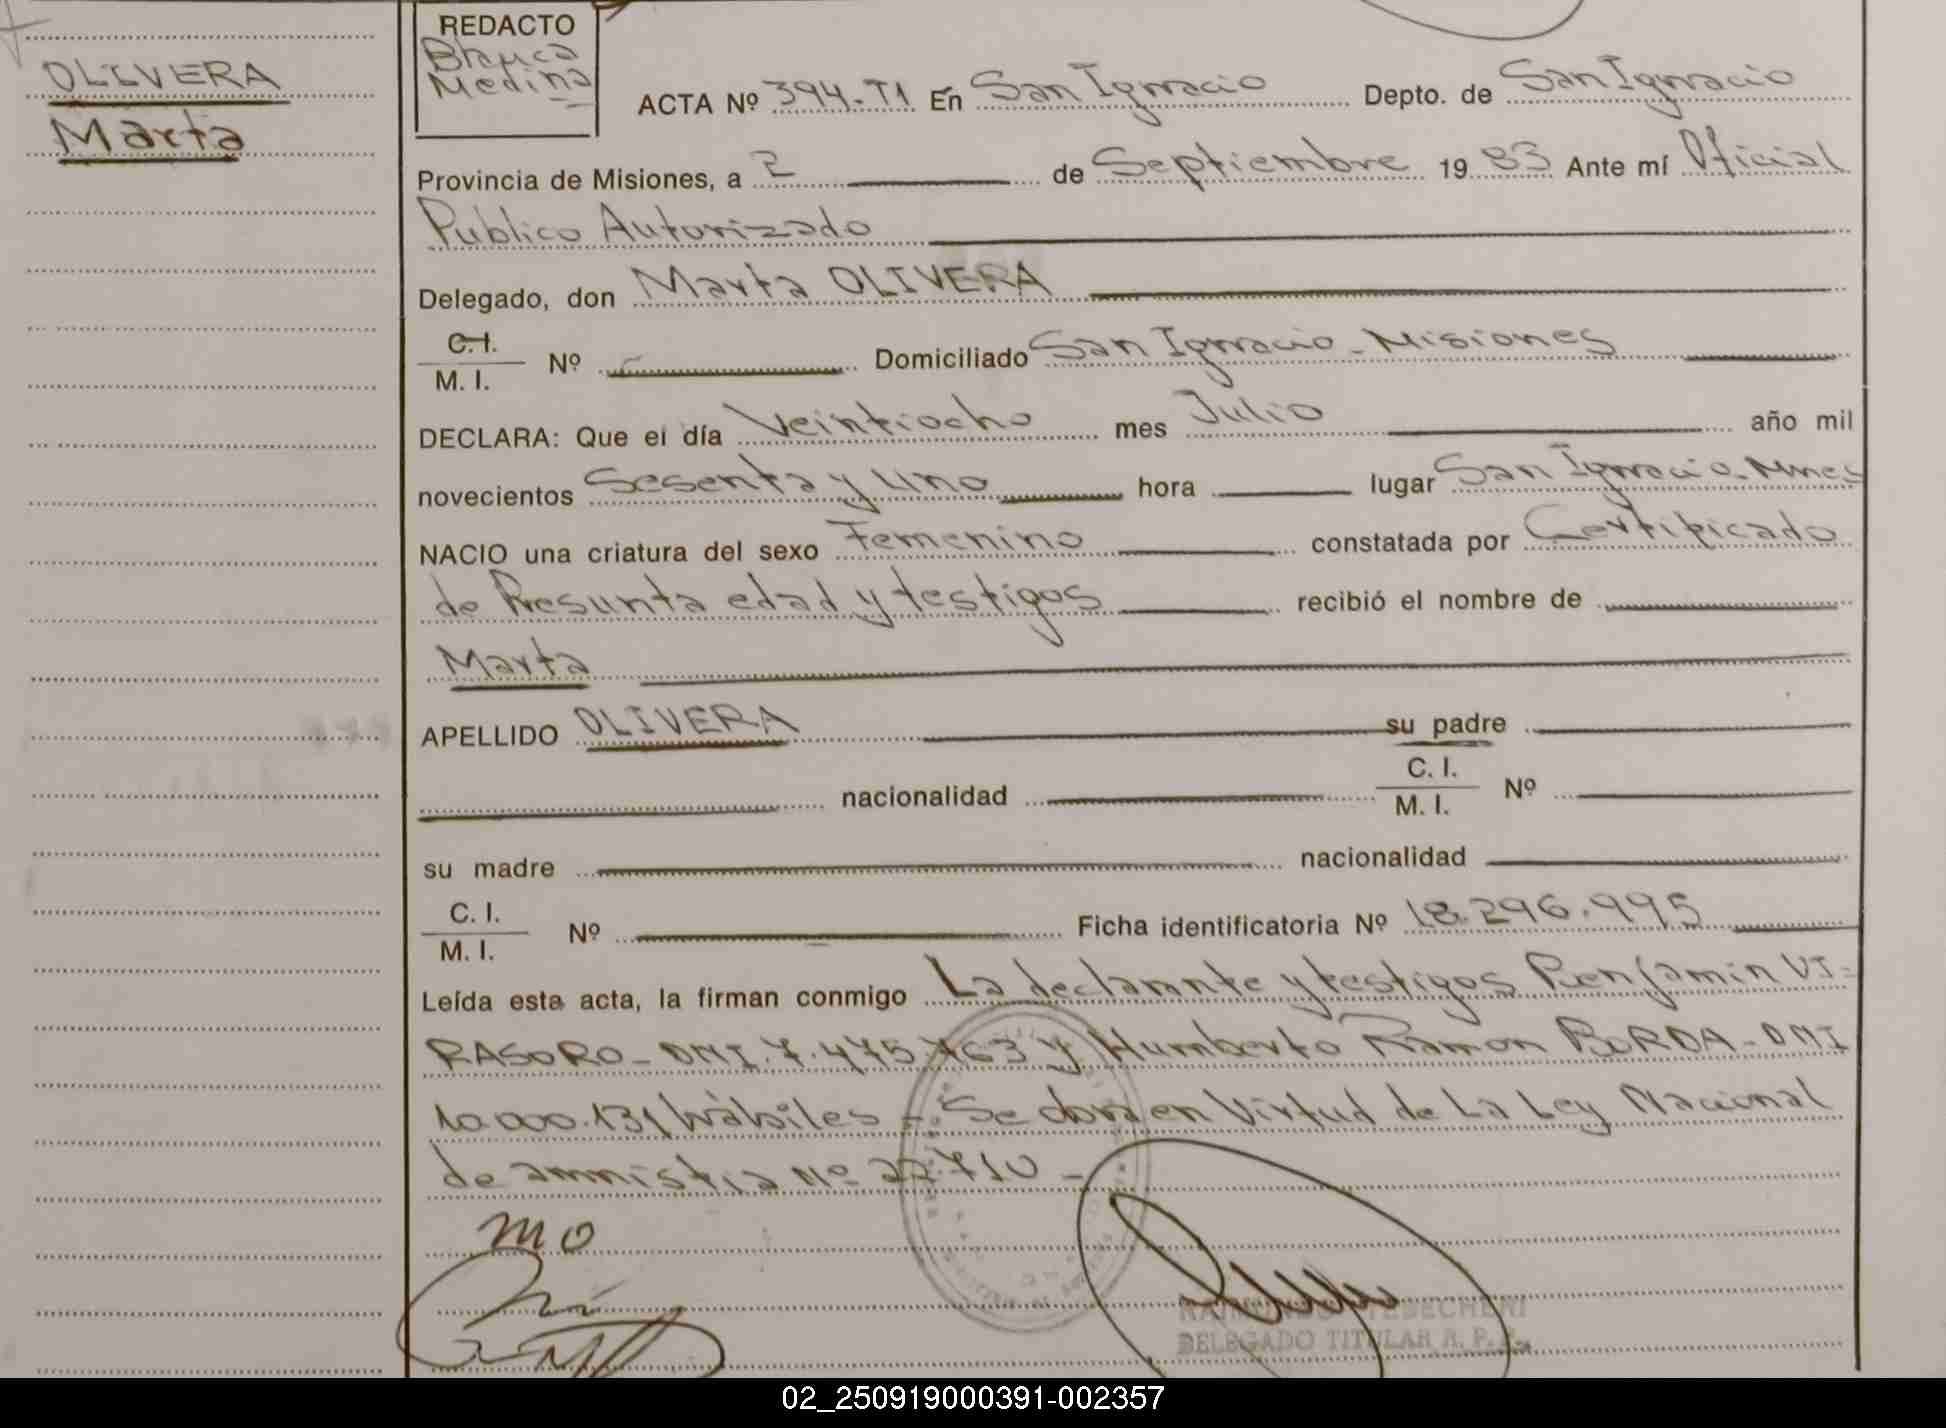 OLIVERA
Marta
REDACTO
Blanca
Medina
ACTA Nº 394-T1 En San Ignacio Depto. de San Ignacio
Provincia de Misiones, a 2 de Septiembre 1983 Ante mí Oficial
Publico Autorizado
Delegado, don Marta OLIVERA
C. I.
M. I. Nº Domiciliado San Ignacio - Misiones
DECLARA: Que el día Veintiocho mes Julio año mil
novecientos Sesenta y uno hora lugar San Ignacio - Mnes
NACIO una criatura del sexo Femenino constatada por Certificado
de Presunta edad y testigos recibió el nombre de
Marta
APELLIDO OLIVERA su padre
nacionalidad C. I.
M. I. Nº
su madre nacionalidad
C. I.
M. I. Nº Ficha identificatoria Nº 18.296.995
Leída esta acta, la firman conmigo La declarante y testigos Benjamin VI-
RASORO - DNI. 7.475.763 y Humberto Ramon BORDA - DNI
10.000.131 hábiles - Se labra en Virtud de La Ley Nacional
de amnistia Nº 22.710 -
MO
DELEGADO TITULAR R. P.
02_250919000391-002357